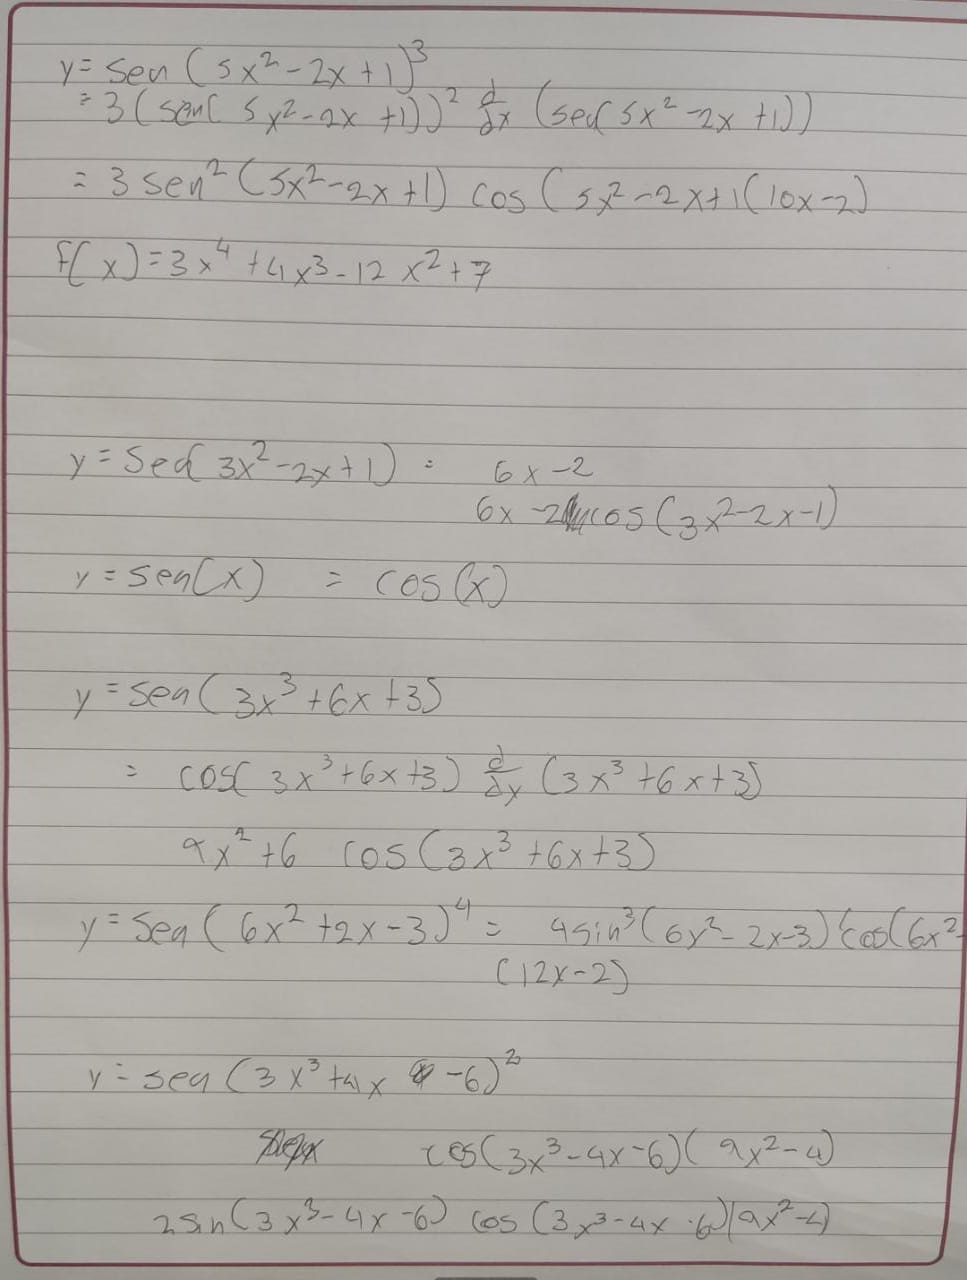 y= sen (5x²-2x+1)³
=3(sen( 5x²-2x +1))² d/dx (sen(5x²-2x+1))
= 3 sen² (5x²-2x+1) cos (5x²-2x+1(10x-2)
f(x)=3x⁴+4x³-12x²+7
y = sen(3x²-2x+1) = 6x-2
6x-2 cos(3x²-2x-1)
y = sen(x) = cos(x)
y = sen(3x³+6x+3)
= cos(3x³+6x+3) d/dx (3x³+6x+3)
9x²+6 cos(3x³+6x+3)
y=sen(6x²+2x-3)⁴ = 4sin³(6x²-2x-3)(cos(6x²-
(12x-2)
y = sen (3x³+4x -6)²
cos(3x³-4x-6)(9x²-4)
2sin(3x³-4x-6) cos(3x³-4x-6)(9x²-4)